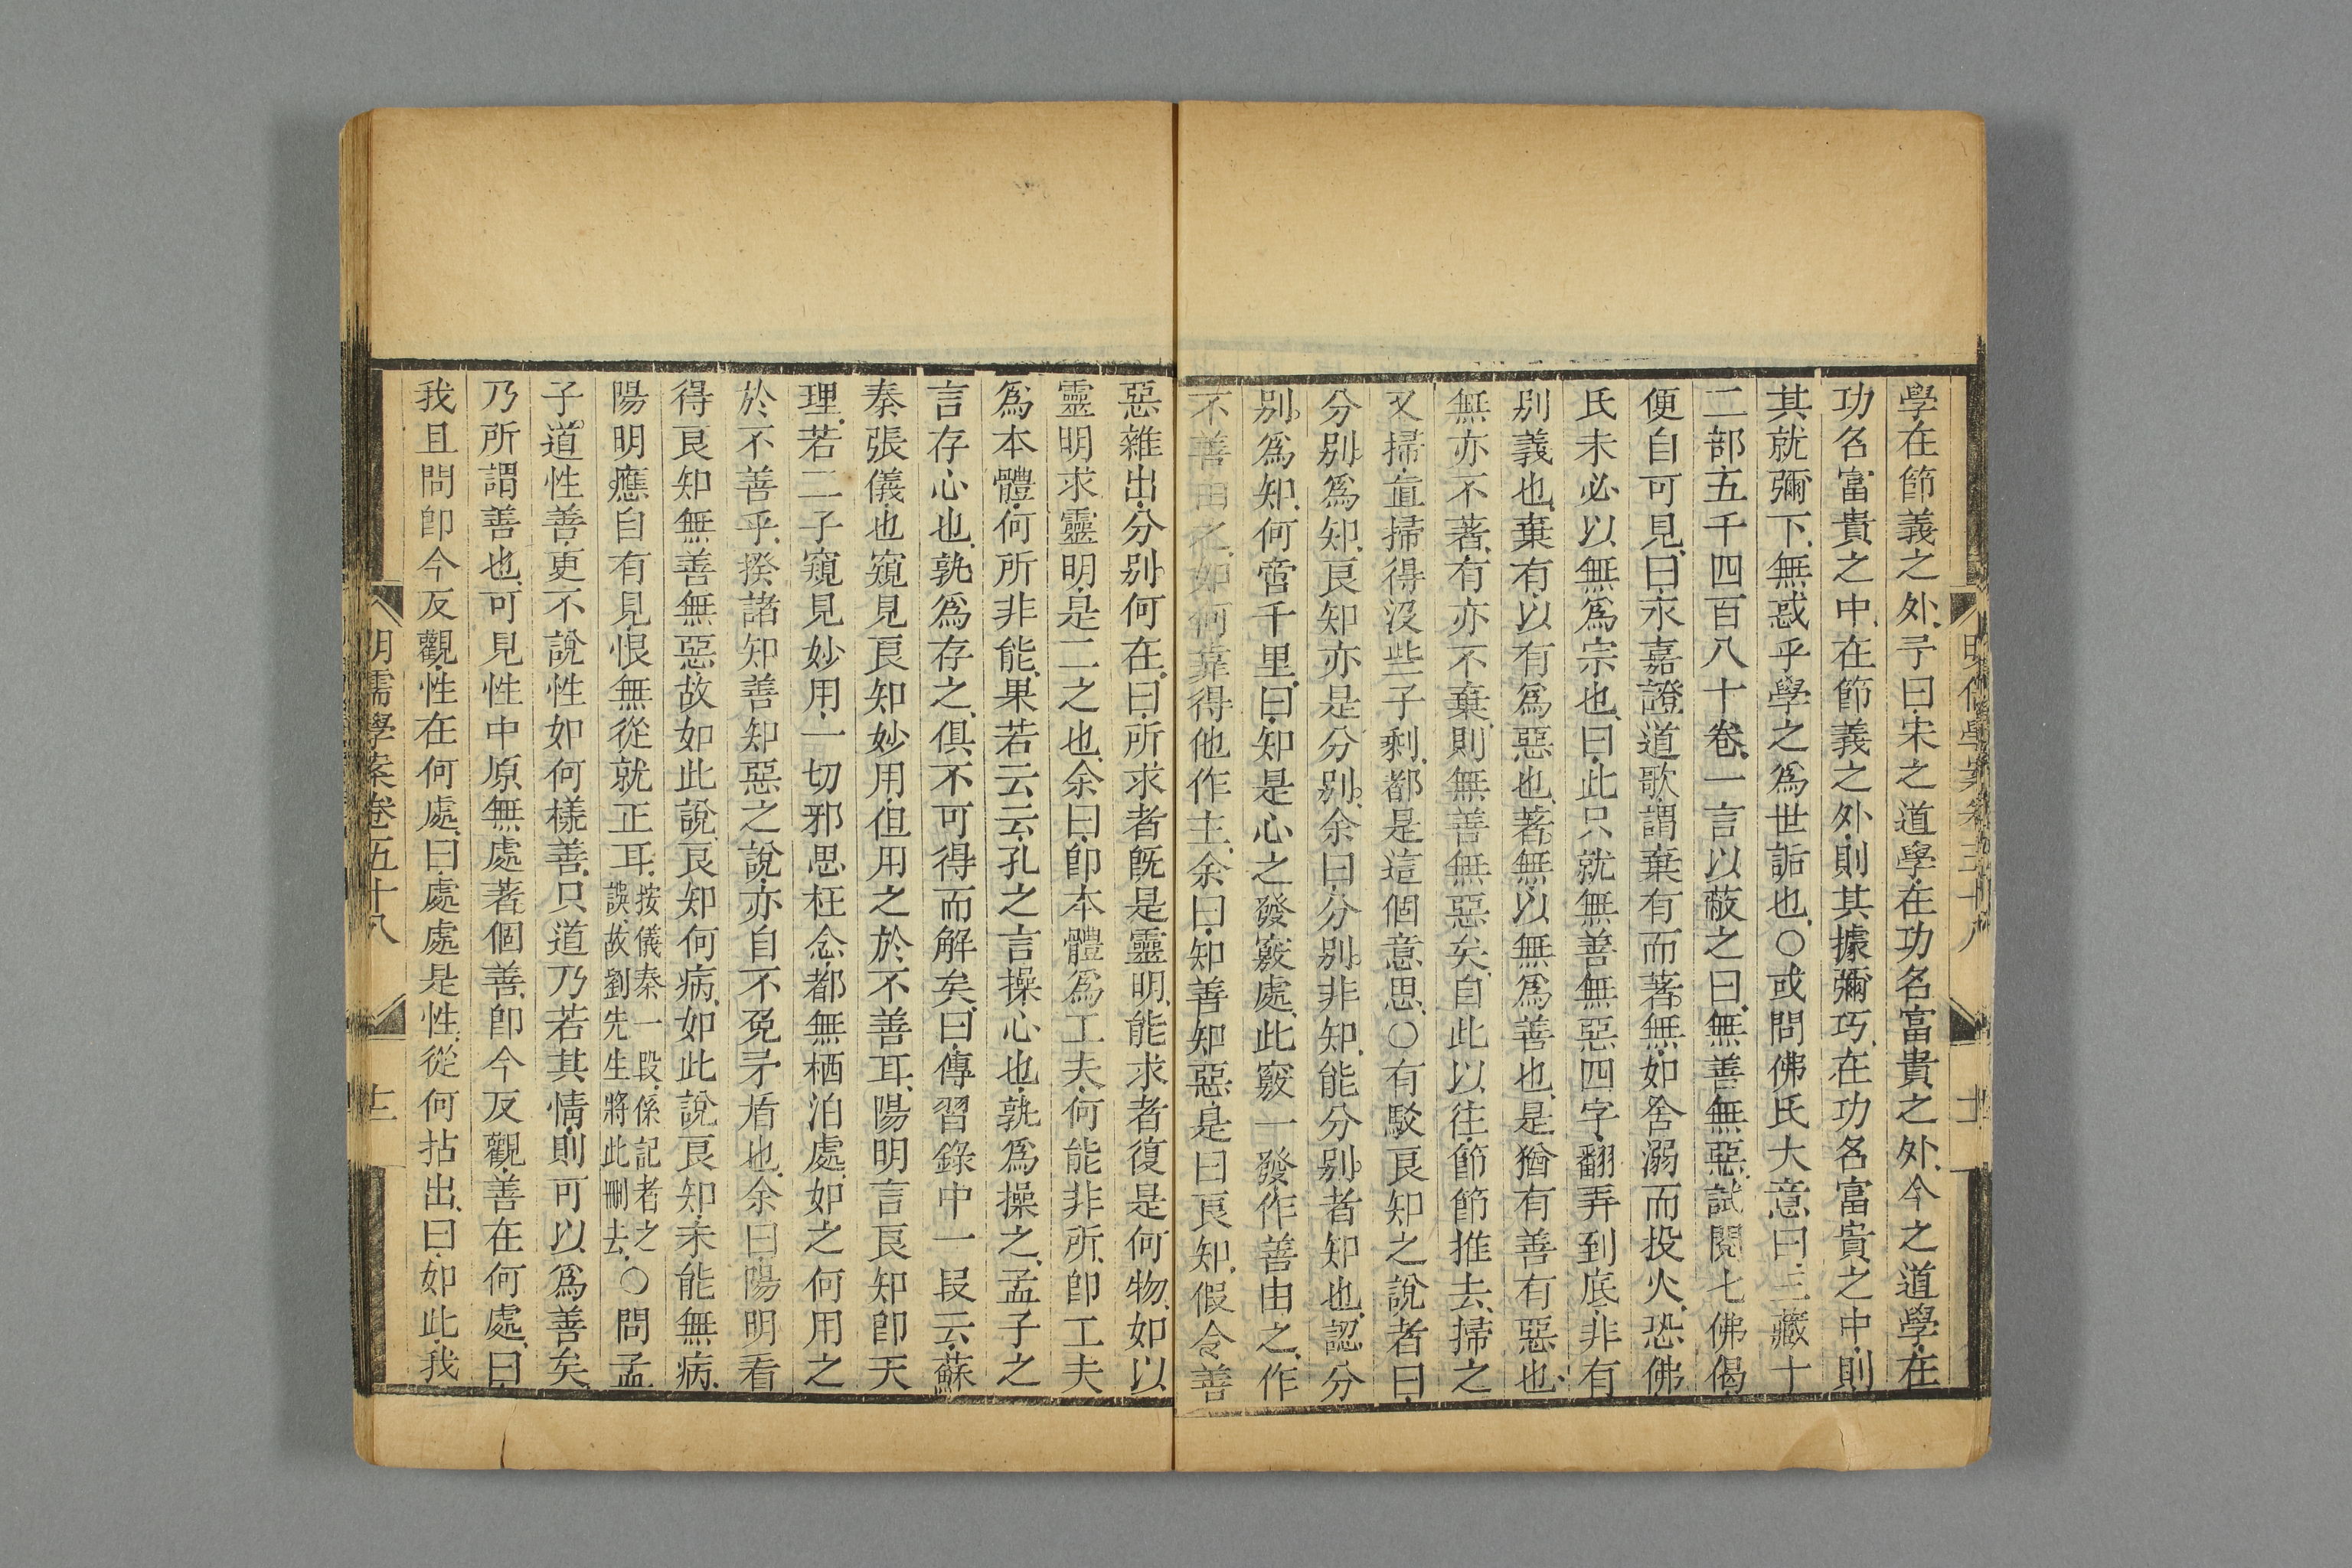 學在節義之外予曰宋之道學在功名富貴之外今之道學在
功名富貴之中在節義之外則其據彌巧在功名富貴之中則
其就彌下無惑乎學之爲世詬也○或問佛氏大意曰三藏十
二部五千四百八十卷一言以蔽之曰無善無惡試閱七佛偈
便自可見曰永嘉證道歌謂棄有而著無如舍溺而投火恐佛
氏未必以無爲宗也曰此只就無善無惡四字翻弄到底非有
別義也棄有以有爲惡也著無以無爲善也是猶有善有惡也
無亦不著有亦不棄則無善無惡矣自此以往節節推去掃之
又掃直掃得沒些子剩都是這個意思○有駁良知之說者曰
分別爲知良知亦是分別余曰分別非知能分別者知也認分
別爲知何啻千里曰知是心之發竅處此竅一發作善由之作
不善由之如何靠得他作主余曰知善知惡是曰良知假令善
惡雜出分別何在曰所求者旣是靈明能求者復是何物如以
靈明求靈明是二之也余曰卽本體爲工夫何能非所卽工夫
爲本體何所非能果若云云孔之言操心也孰爲操之孟子之
言存心也孰爲存之俱不可得而解矣曰傳習錄中一段云蘇
秦張儀也窺見良知妙用但用之於不善耳陽明言良知卽天
理若二子窺見妙用一切邪思枉念都無栖泊處如之何用之
於不善乎揆諸知善知惡之說亦自不免矛盾也余曰陽明看
得良知無善無惡故如此說良知何病如此說良知未能無病
陽明應自有見恨無從就正耳按儀秦一段係記者之誤故劉先生將此刪去○問孟
子道性善更不說性如何樣善只道乃若其情則可以爲善矣
乃所謂善也可見性中原無處著個善卽今反觀善在何處曰
我且問卽今反觀性在何處曰處處是性從何拈出曰如此我
明儒學案卷五十八
十二